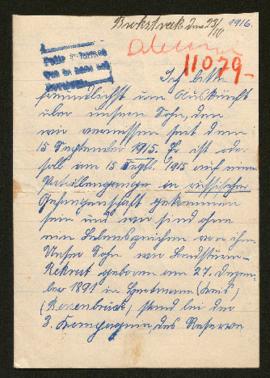 den 23/10 1916.
11079.
Ich bitte
freundlichst um Auskunft
über unsern Sohn, den
wir vermissen seit dem
15 September 1915. Er ist oder
soll am 15 Sept. 1915 auf einer
in russischer
Gefangenschaft gekommen
sein und wir sind ohne
ein Lebenszeichen von ihm
Unser Sohn war Landsturm-
Rekrut geboren am 27. Dezem-
ber 1891 in
stand bei der
3. Kompagnie, des Reserve